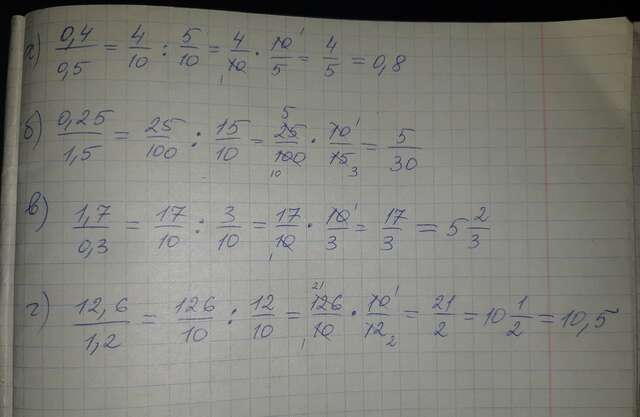 а) 0,4/0,5 = 4/10 : 5/10 = 4/10 1 · 10 1/5 = 4/5 = 0,8
б) 0,25/1,5 = 25/100 : 15/10 = 5 25/100 10 · 10 1/15 3 = 5/30
в) 1,7/0,3 = 17/10 : 3/10 = 17/10 1 · 10 1/3 = 17/3 = 5 2/3
г) 12,6/1,2 = 126/10 : 12/10 = 21 126/10 1 · 10 1/12 2 = 21/2 = 10 1/2 = 10,5